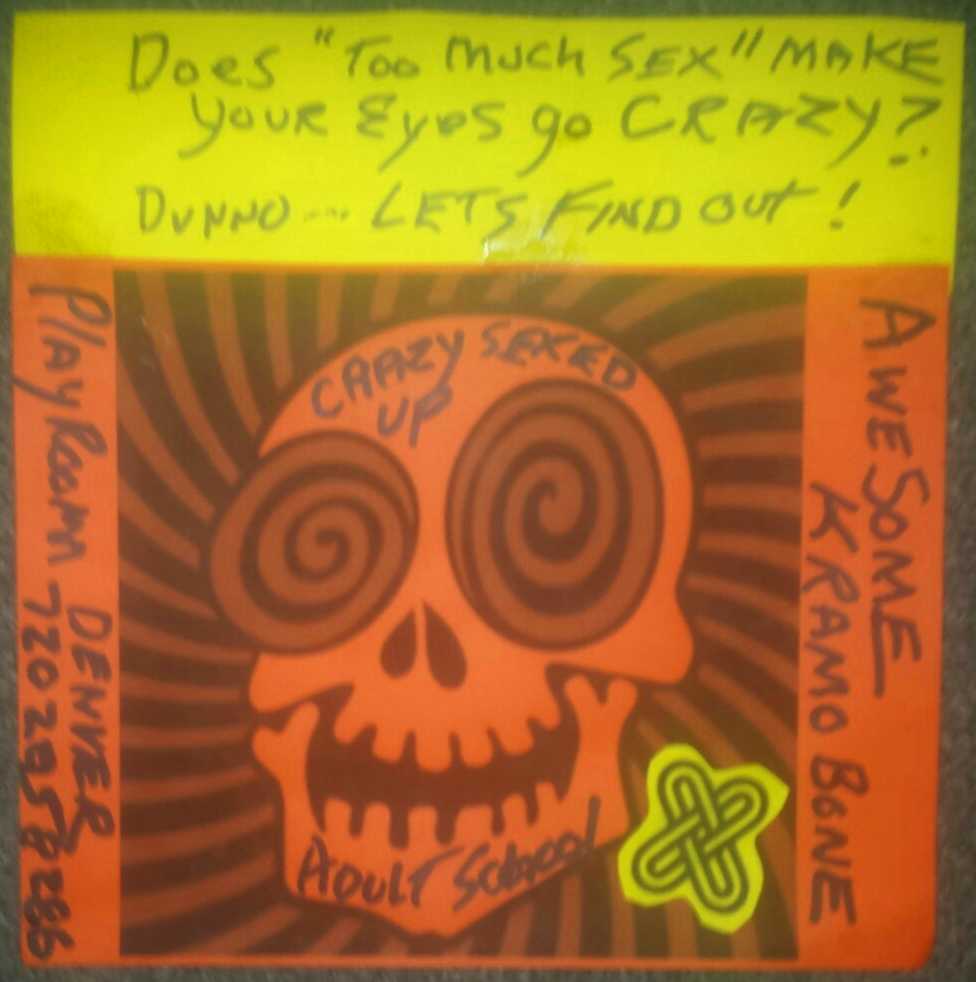 Does "Too Much SEX" MAKE
YOUR EYES go CRAZY?
DUNNO... LETS FIND OUT!
CRAZY SEXED
UP
ADULT School
PlayRoom DENVER
720 295 8286
AWESOME
KRAMO BONE